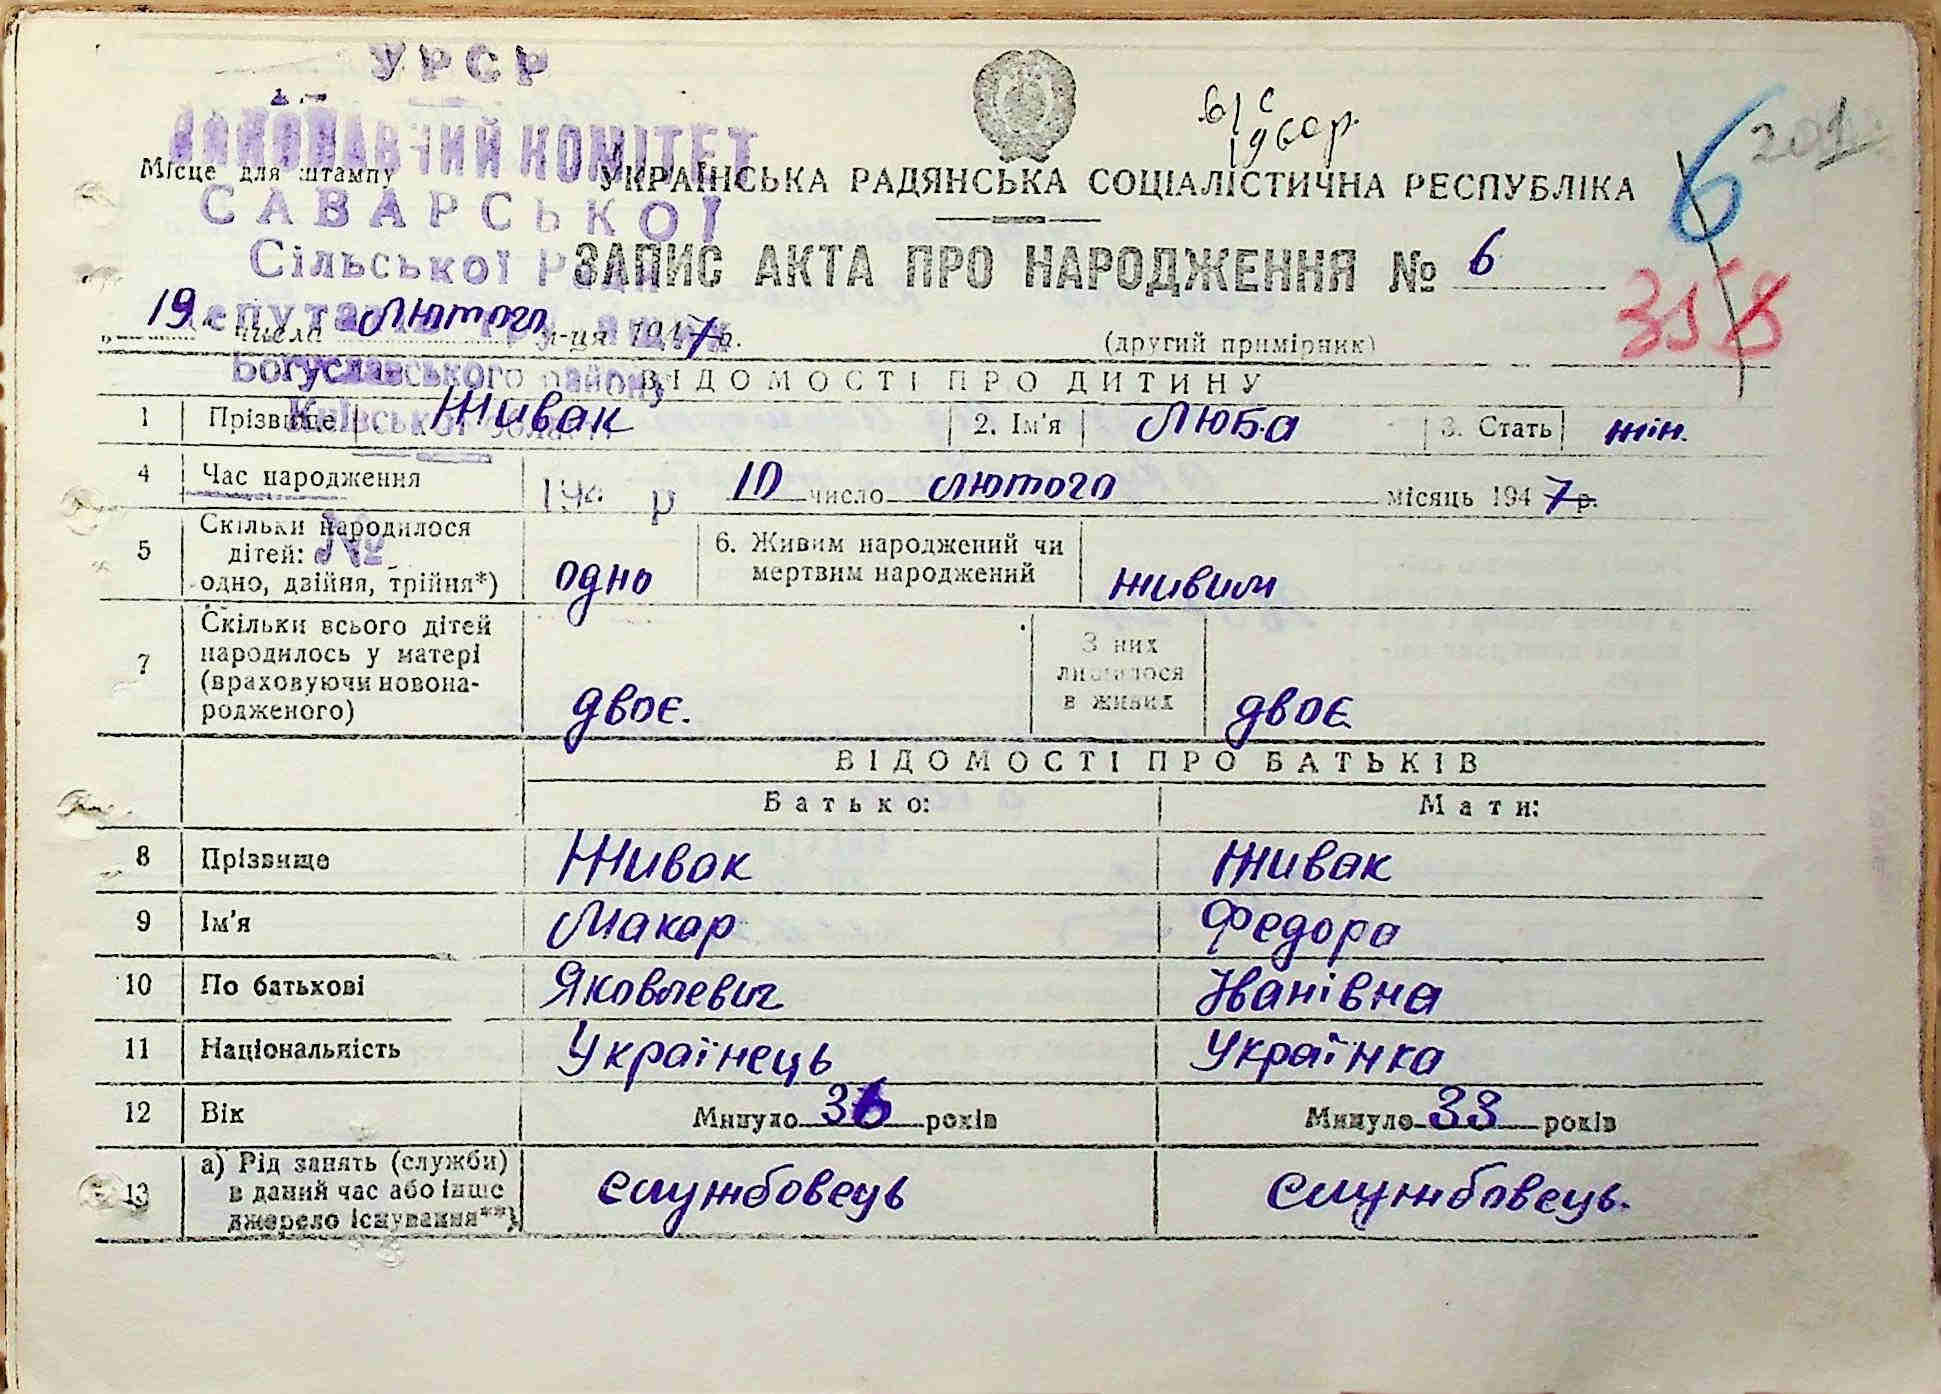 УРСР
ВИКОНАВЧИЙ КОМІТЕТ
Місце для штампу
УКРАЇНСЬКА РАДЯНСЬКА СОЦІАЛІСТИЧНА РЕСПУБЛІКА
САВАРСЬКОЇ
Сільської Ради
6
201
ЗАПИС АКТА ПРО НАРОДЖЕННЯ № 6
358
„19“ числа лютого м-ця 1947 р.
(другий примірник)
Богуславського району
ВІДОМОСТІ ПРО ДИТИНУ
Київської області
1 Прізвище Живак 2. Ім'я Люба 3. Стать жін.
4 Час народження 10 число лютого місяць 1947 р.
194 р
№
5 Скільки народилося дітей: одно, двійня, трійня*) одно 6. Живим народжений чи мертвим народжений живим
7 Скільки всього дітей народилось у матері (враховуючи новонародженого) двоє. З них лишилося в живих двоє
ВІДОМОСТІ ПРО БАТЬКІВ
Батько: Мати:
8 Прізвище Живак Живак
9 Ім'я Макар Федора
10 По батькові Яковлевич Іванівна
11 Національність Українець Українка
12 Вік Минуло 36 років Минуло 33 років
13 а) Рід занять (служби) в даний час або інше джерело існування**) службовець службовець.